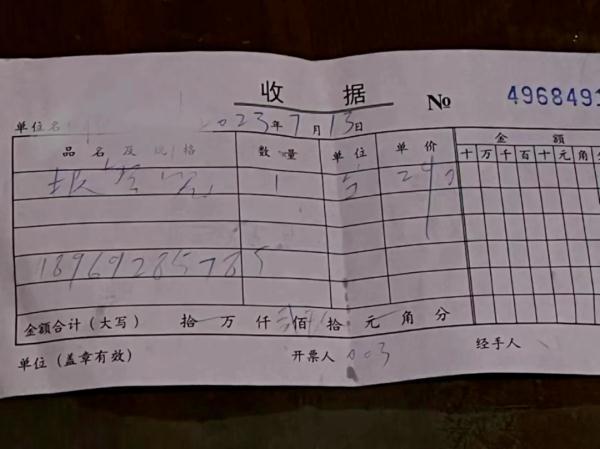 收 据 No 4968491
单位名 2023年7月13日
品名及规格 数量 单位 单价 金额
十万千百十元角分
1 台
18969285785
金额合计(大写) 拾 万 仟 佰 拾 元 角 分
单位(盖章有效) 开票人 003 经手人